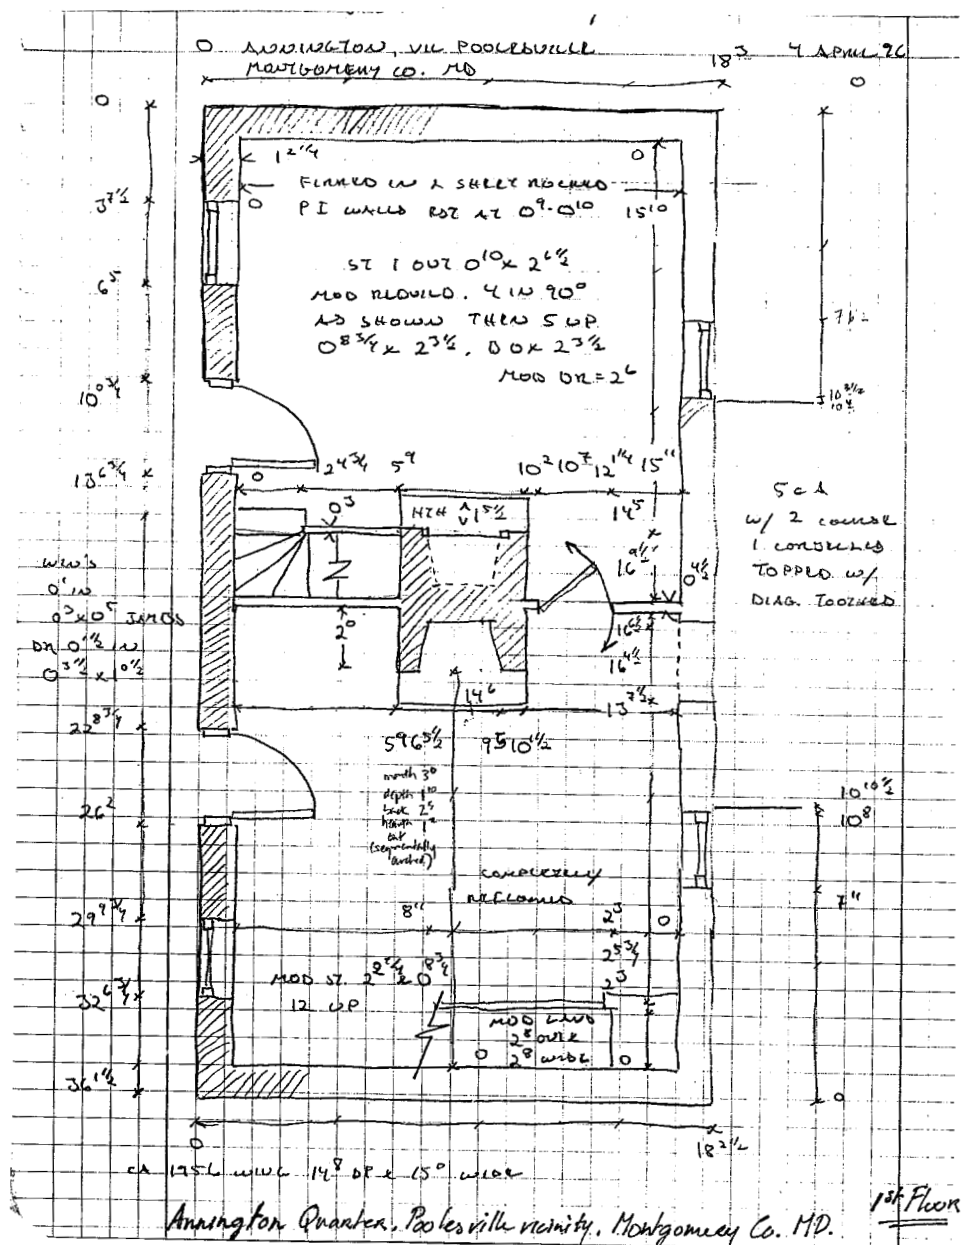 0 ANNINGTON, VIC POOLESVILLE 18³ 4 APRIL 96
MONTGOMERY CO. MD
0
0
1 2 1/4
0
FURRED IN & SHEET ROCKED
0
P I WALLS EST AT 0⁹-0¹⁰
15¹⁰
3 7 1/2
ST 1 OUT 0¹⁰ x 2 6 1/2
6⁵
MOD REBUILD. 4 IN 90°
AS SHOWN THEN 5 UP
0 8 3/4 x 2 3 1/2, D O x 2 3 1/2
MOD DR = 2⁶
10 0 3/4
13 6 3/4
0
2 4 3/4
5⁹
10² 10⁷ 12 1 1/4 15¹¹
0³
HTH 1 5 1/2
14⁵
5 C A
W/ 2 COURSE
1 CORBELLED
TOPPED W/
DIAG. TOOTHED
WIN'S
0¹ IN
0³ x 0⁵ JAMBS
DR 0 1 1/2 IN
0 3 1/2 x 1 0 1/2
16 9 1/2
0 4 1/2
2⁰
16 6 1/2
16 4 1/2
14⁶
13 7 1/2
22 8 3/4
5⁹ 6 5 1/2
9⁵ 10 1 1/2
mouth 3⁰
depth 1¹⁰
back 2⁵
hearth 1²
cut
(segmentally
arched)
10 10 1/2
10⁸
26²
COMPLETELY
REFLOORED
7¹¹
29 9 3/4
8¹¹
2³
0
2 5 3/4
2³
MOD ST. 2 2 1/4 x 0 8 3/4
12 UP
32 6 3/4
MOD LAND
2⁸ OVER
2⁸ WIDE
0
0
36 1 1/2
0
0
18 2 1/2
CA 1956 WING 14⁸ DP x 15⁰ WIDE
1st Floor
Annington Quarter. Poolesville vicinity. Montgomery Co. MD.